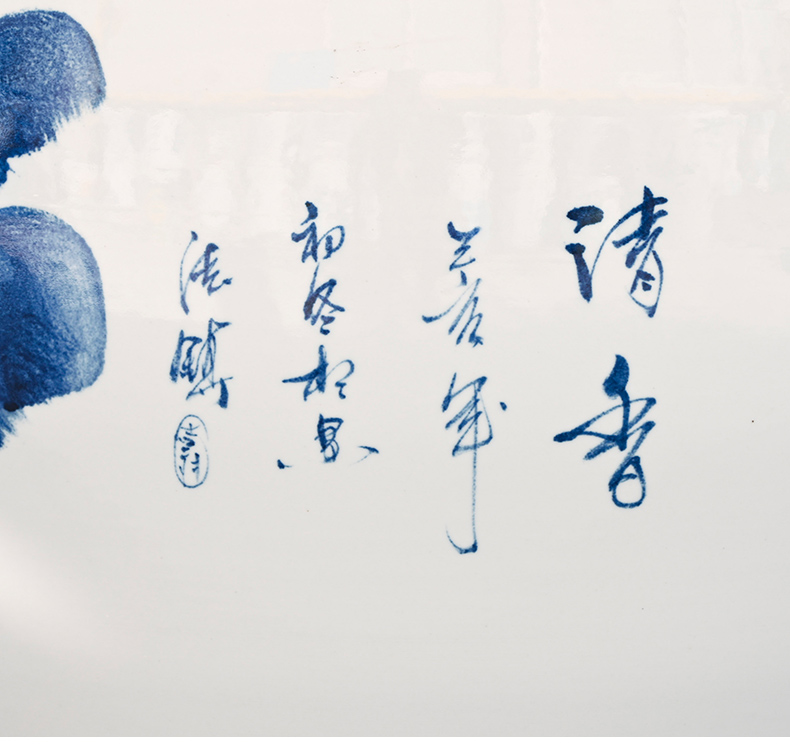 清香
年
初冬於景
德鎮